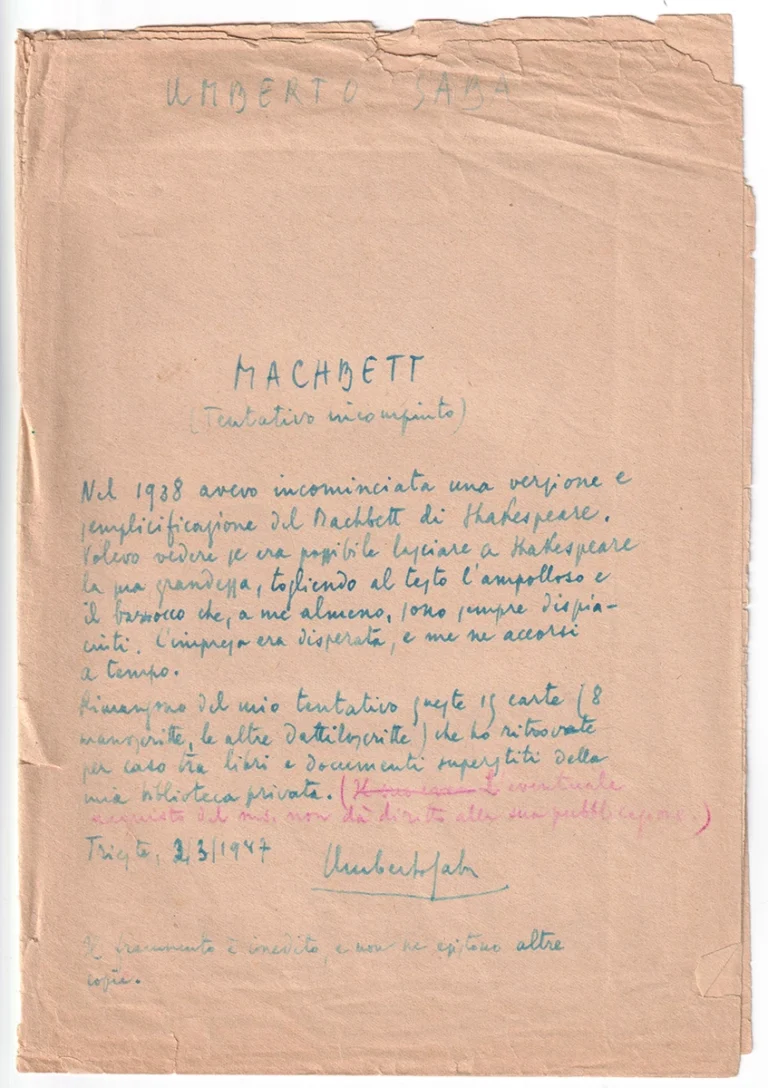 UMBERTO SABA
MACHBETT
(Tentativo incompiuto)
Nel 1938 avevo incominciata una versione e
semplicificazione del Machbett di Shakespeare.
Volevo vedere se era possibile lasciare a Shakespeare
la sua grandezza, togliendo al testo l'ampolloso e
il barrocco che, a me almeno, sono sempre dispia-
ciuti. L'impresa era disperata, e me ne accorsi
a tempo.
Rimangono del mio tentativo queste 15 carte (8
manoscritte, le altre dattiloscritte) che ho ritrovate
per caso tra libri e documenti superstiti della
mia biblioteca privata. (L'eventuale
acquisto del ms. non dà diritto alla sua pubblicazione.)
Trieste, 2/3/1947
Umberto Saba
Il frammento è inedito, e non ne esistono altre
copie.